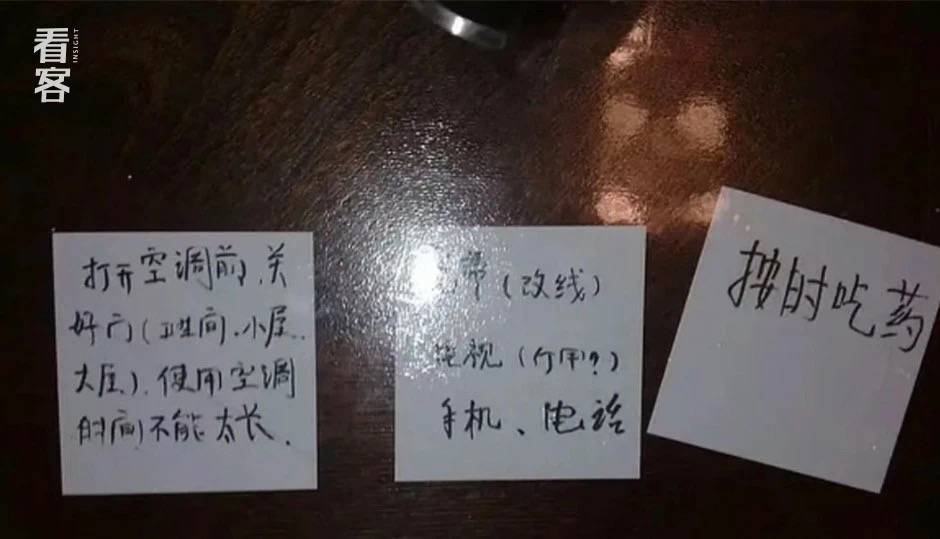 看客
INSIGHT
打开空调前,关
好门(卫生间、小屋、
大屋)、使用空调
时间不能太长、
(改线)
电视(作用?)
手机、电话
按时吃药